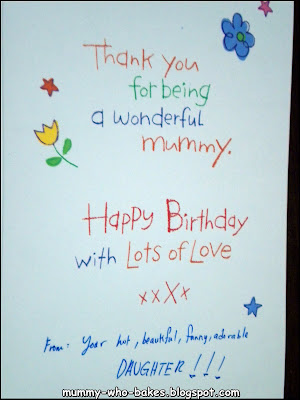 Thank you
for being
a wonderful
mummy.
Happy Birthday
with Lots of Love
xxXx
From: Your hot, beautiful, funny, adorable
DAUGHTER!!!
mummy-who-bakes.blogspot.com